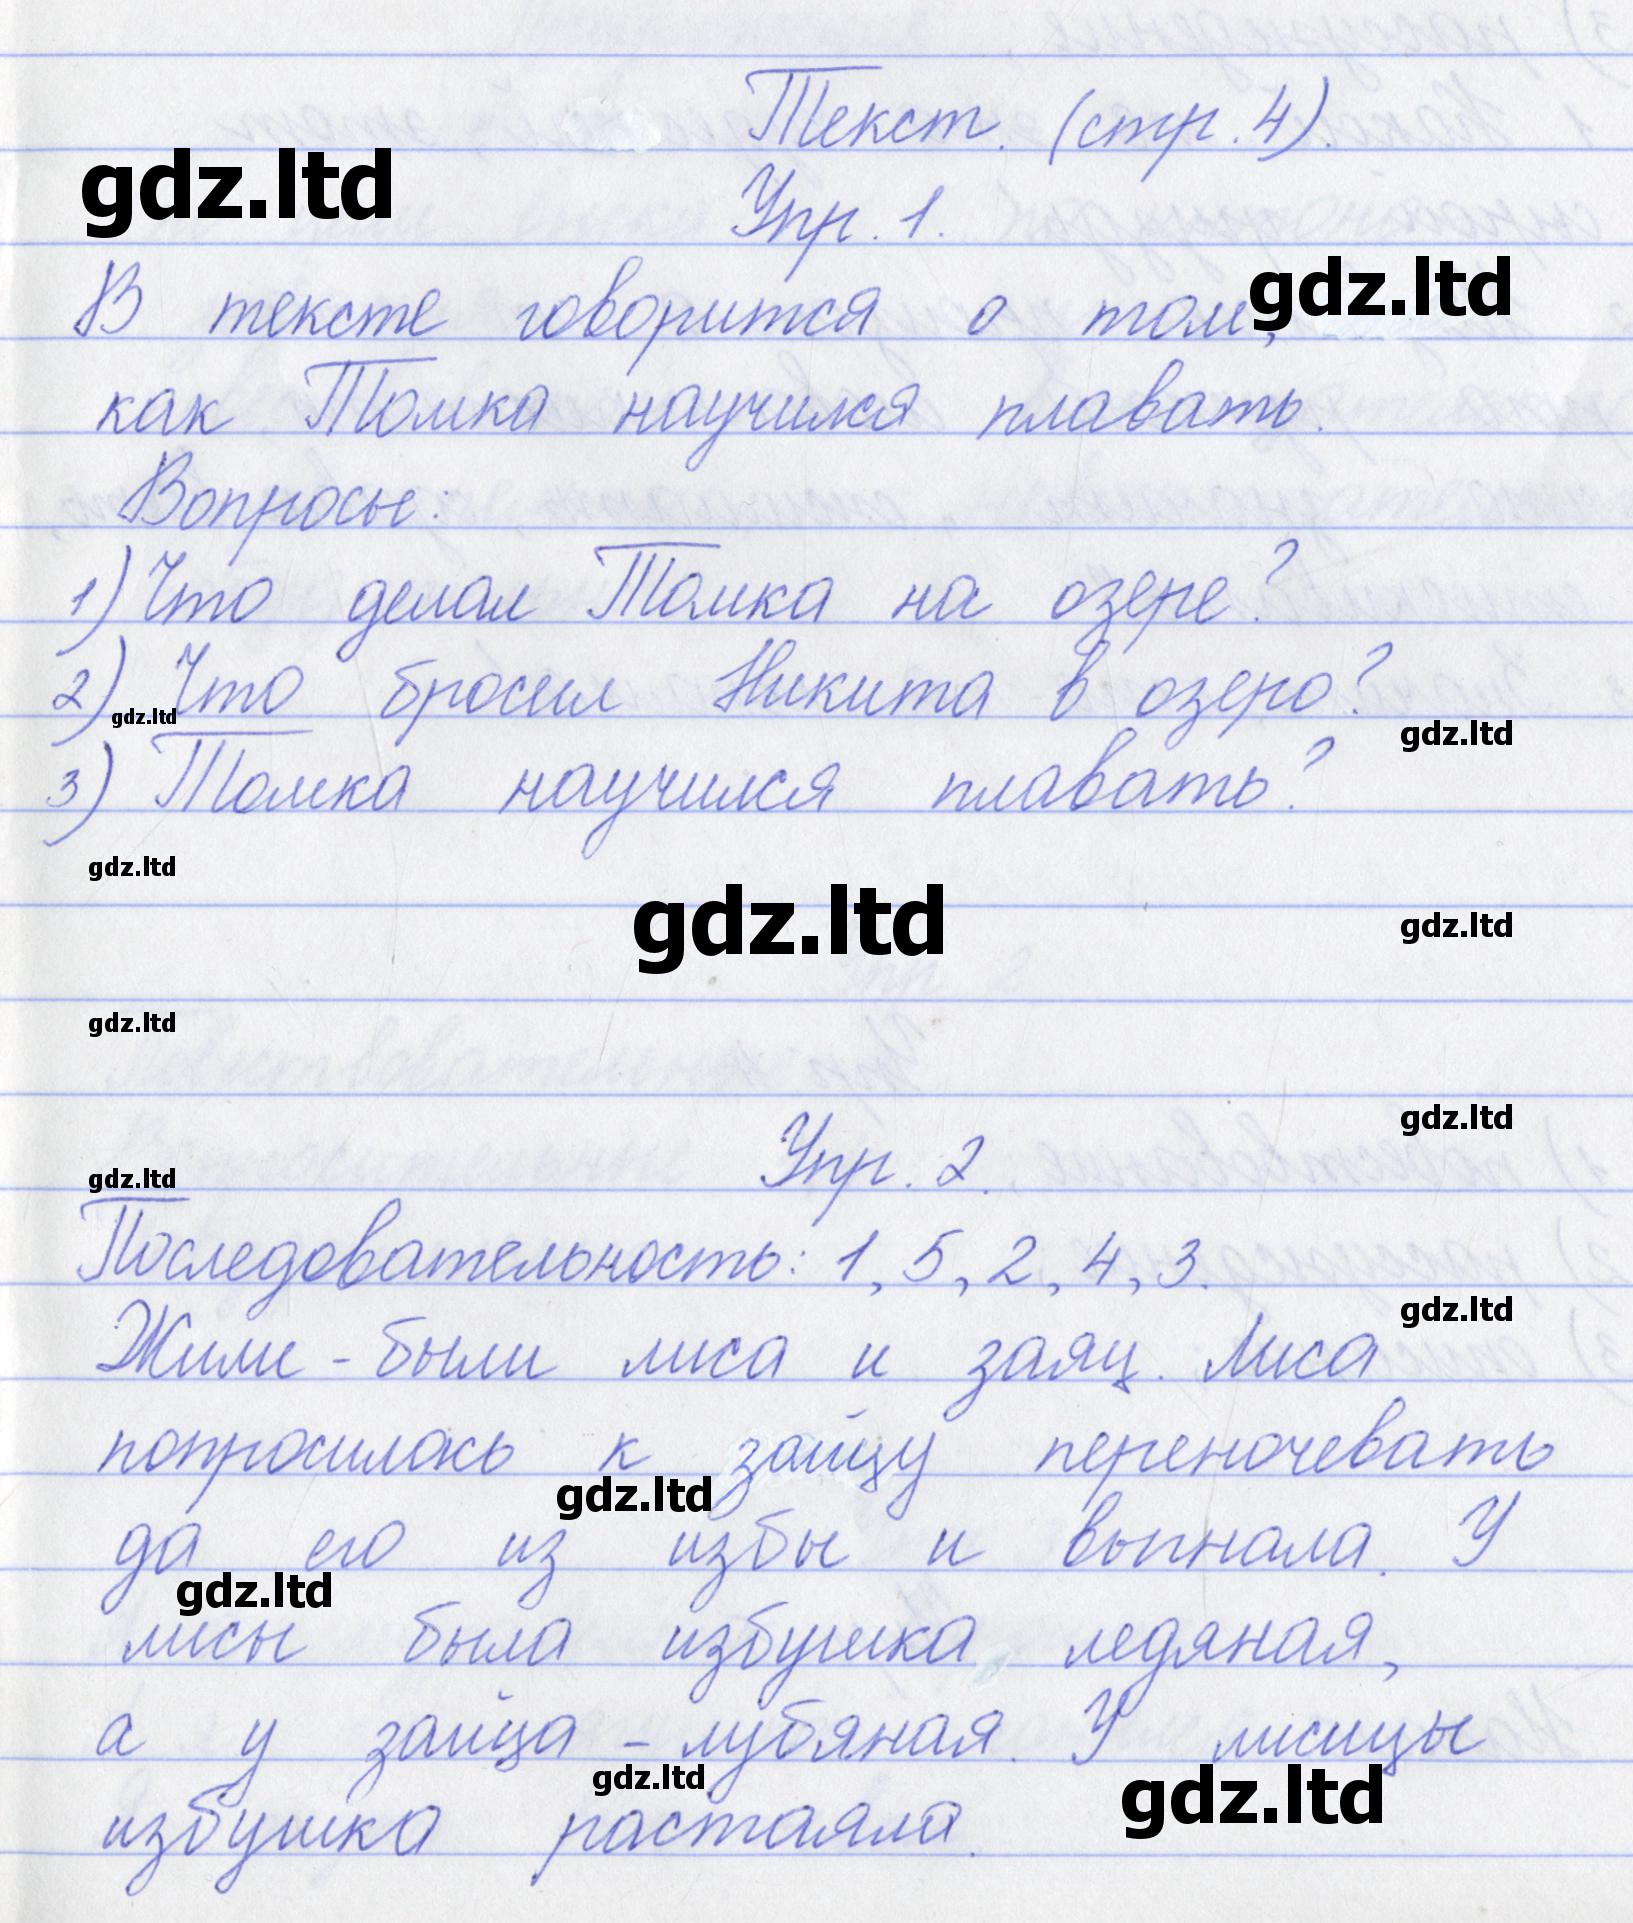 Текст. (стр. 4).
gdz.ltd
Упр. 1.
gdz.ltd
В тексте говорится о том,
как Томка научился плавать.
Вопросы:
1) Что делал Томка на озере?
2) Что бросил Никита в озеро?
gdz.ltd
gdz.ltd
3) Томка научился плавать?
gdz.ltd
gdz.ltd
gdz.ltd
gdz.ltd
gdz.ltd
Упр. 2.
gdz.ltd
Последовательность: 1, 5, 2, 4, 3.
gdz.ltd
Жили-были лиса и заяц. Лиса
попросилась к зайцу переночевать
gdz.ltd
да его из избы и выгнала. У
gdz.ltd
лисы была избушка ледяная,
а у зайца - лубяная. У лисицы
gdz.ltd
gdz.ltd
избушка растаяла.